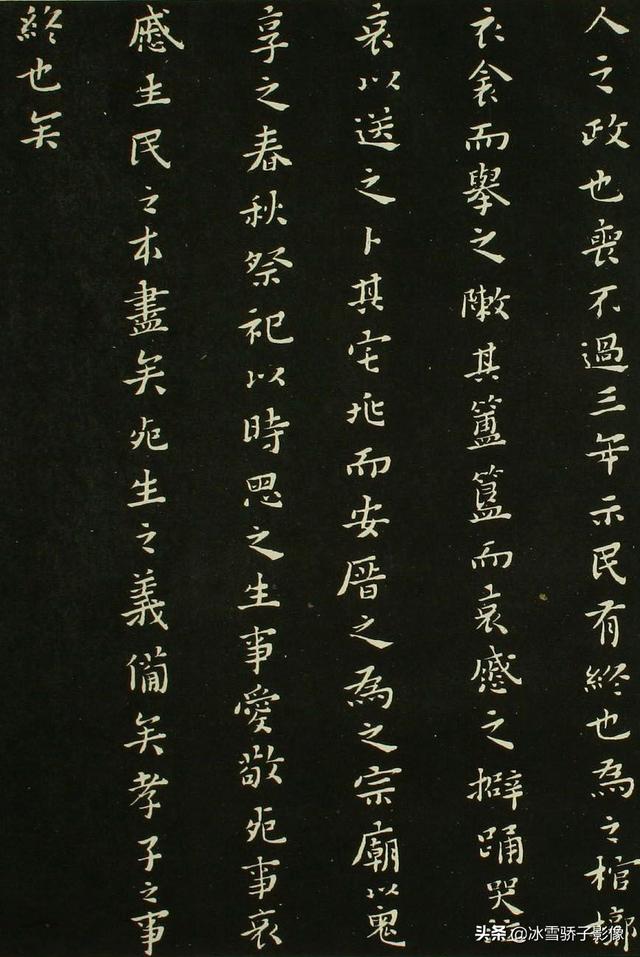 人之政也喪不過三年示民有終也為之棺槨
衣衾而舉之敶其簠簋而哀慼之擗踊哭
哀以送之卜其宅兆而安厝之為之宗廟以鬼
享之春秋祭祀以時思之生事愛敬死事哀
慼生民之本盡矣死生之義備矣孝子之事
終也矣
头条 @冰雪骄子影像